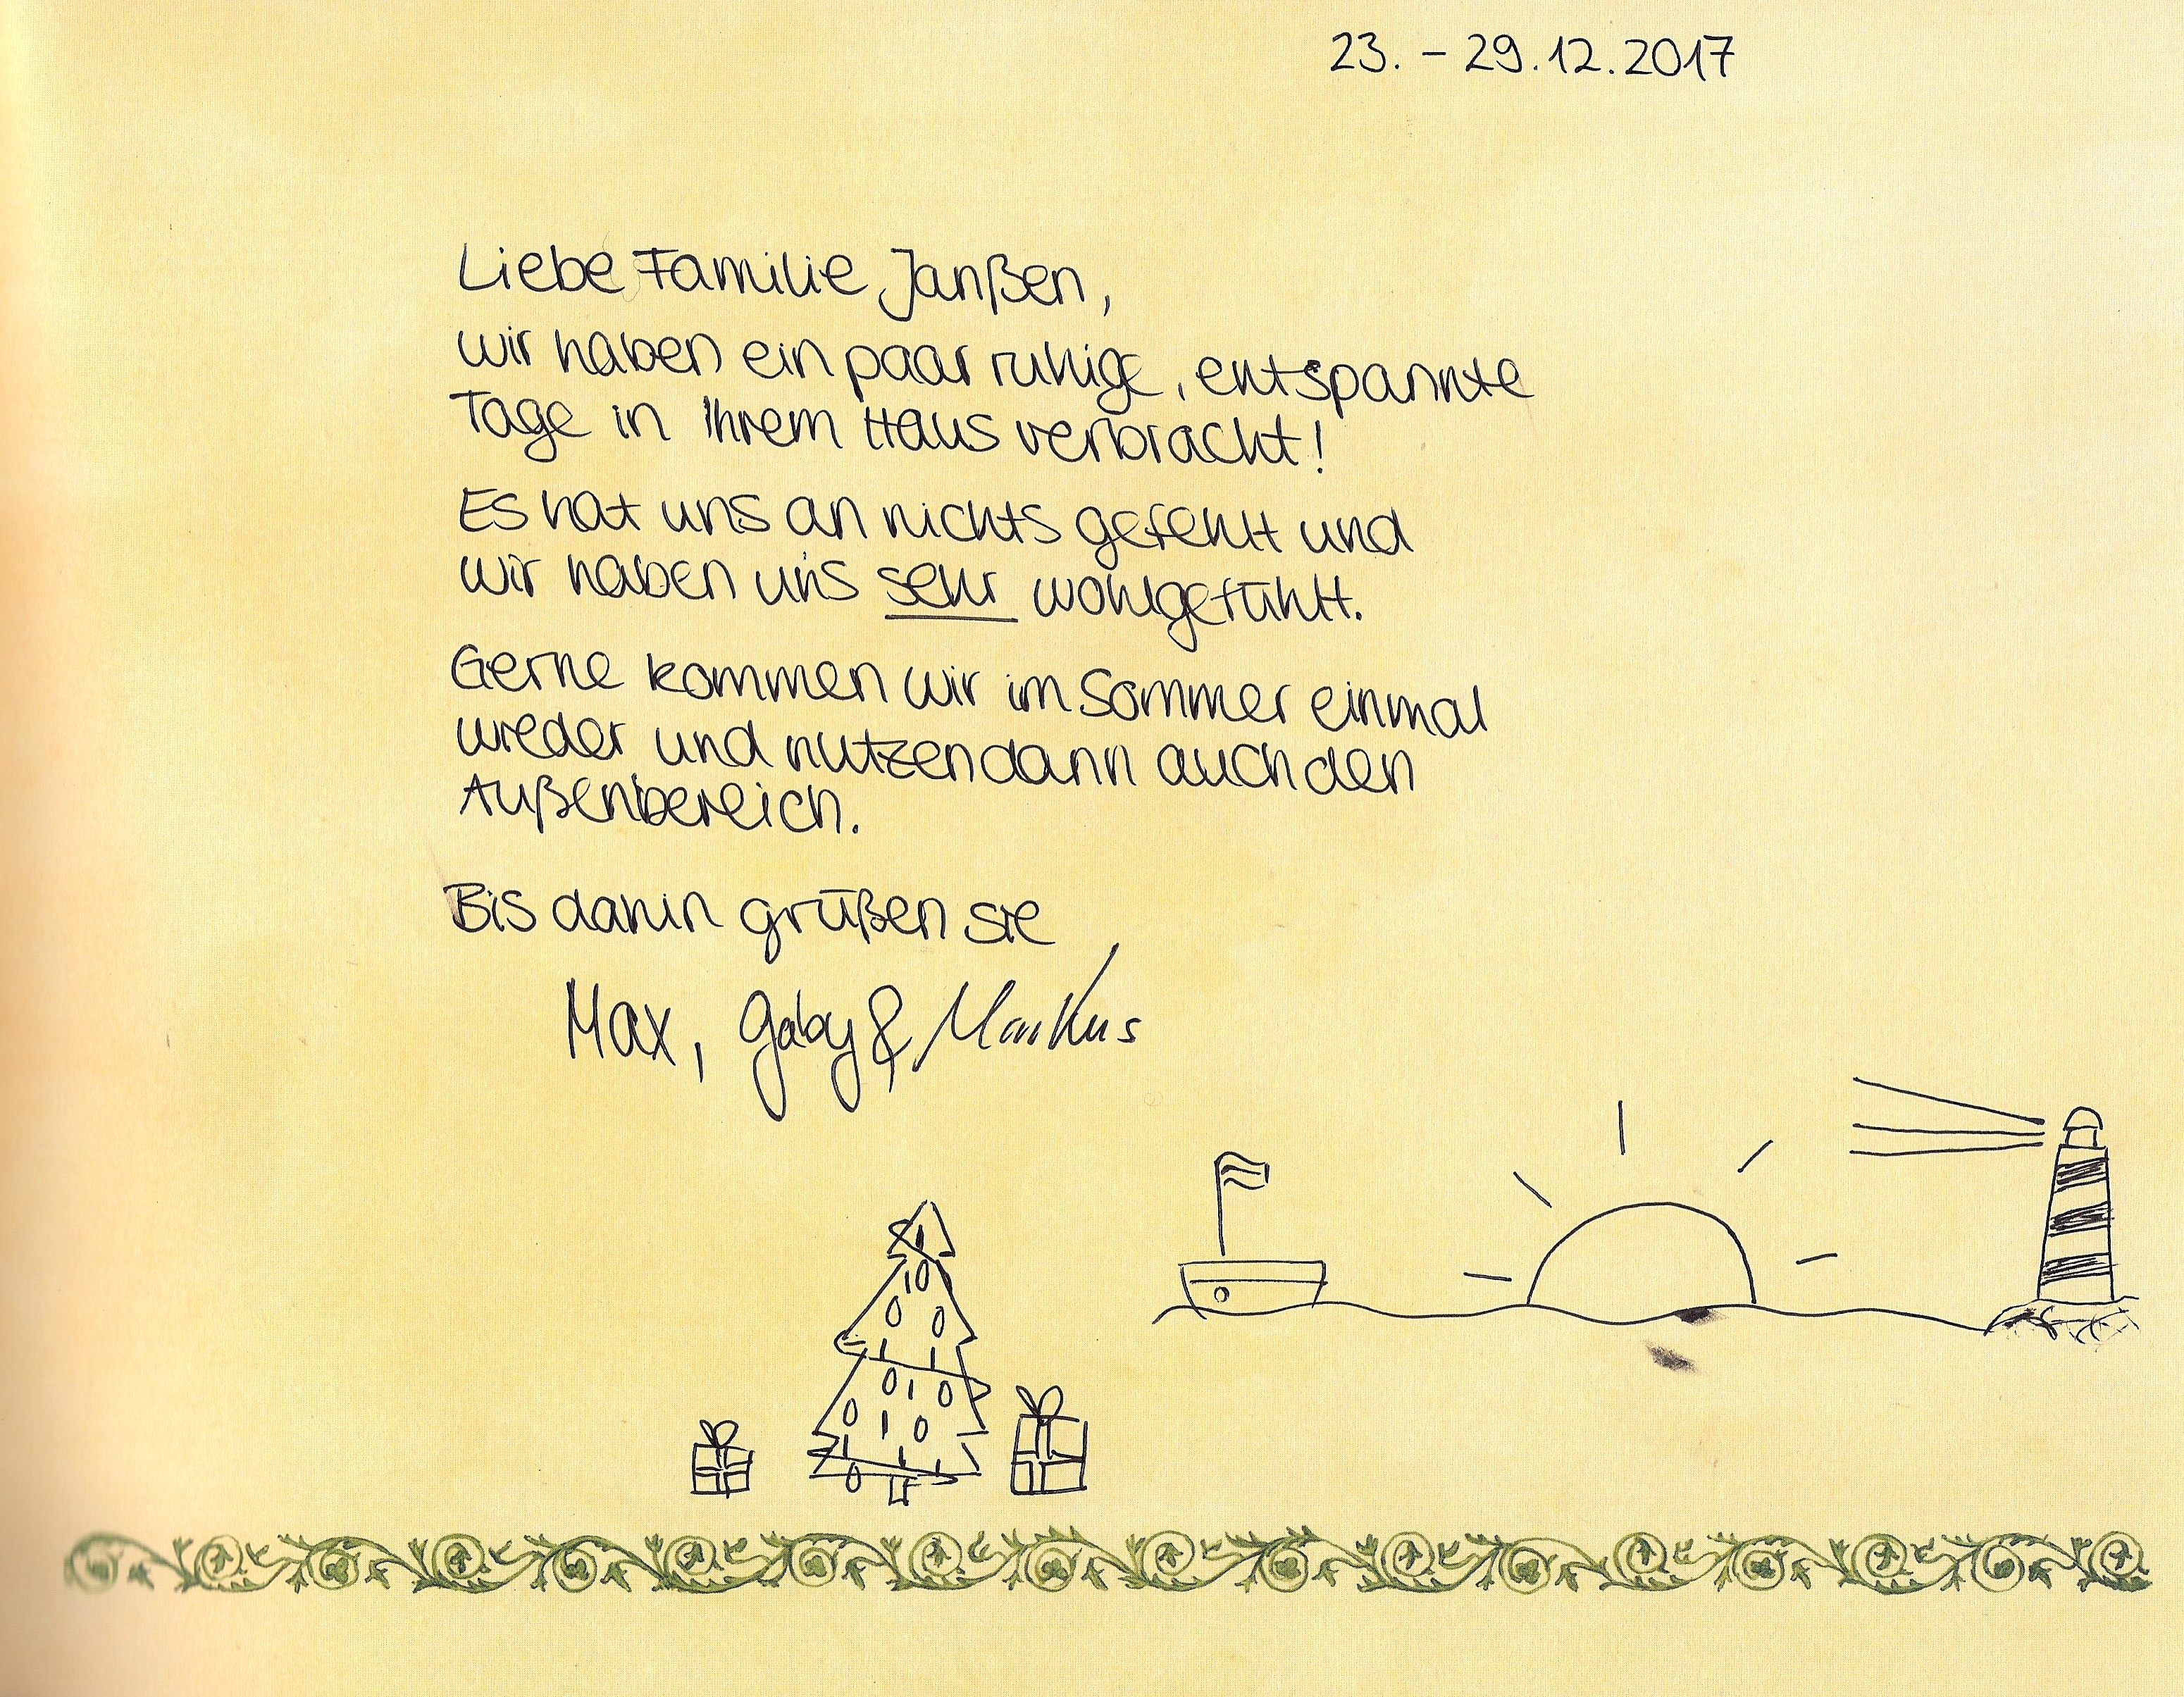 23. – 29.12.2017
Liebe Familie Janßen,
wir haben ein paar ruhige, entspannte
Tage in Ihrem Haus verbracht!
Es hat uns an nichts gefehlt und
wir haben uns sehr wohlgefühlt.
Gerne kommen wir im Sommer einmal
wieder und nutzen dann auch den
Außenbereich.
Bis dahin grüßen sie
Max, Gaby & Markus